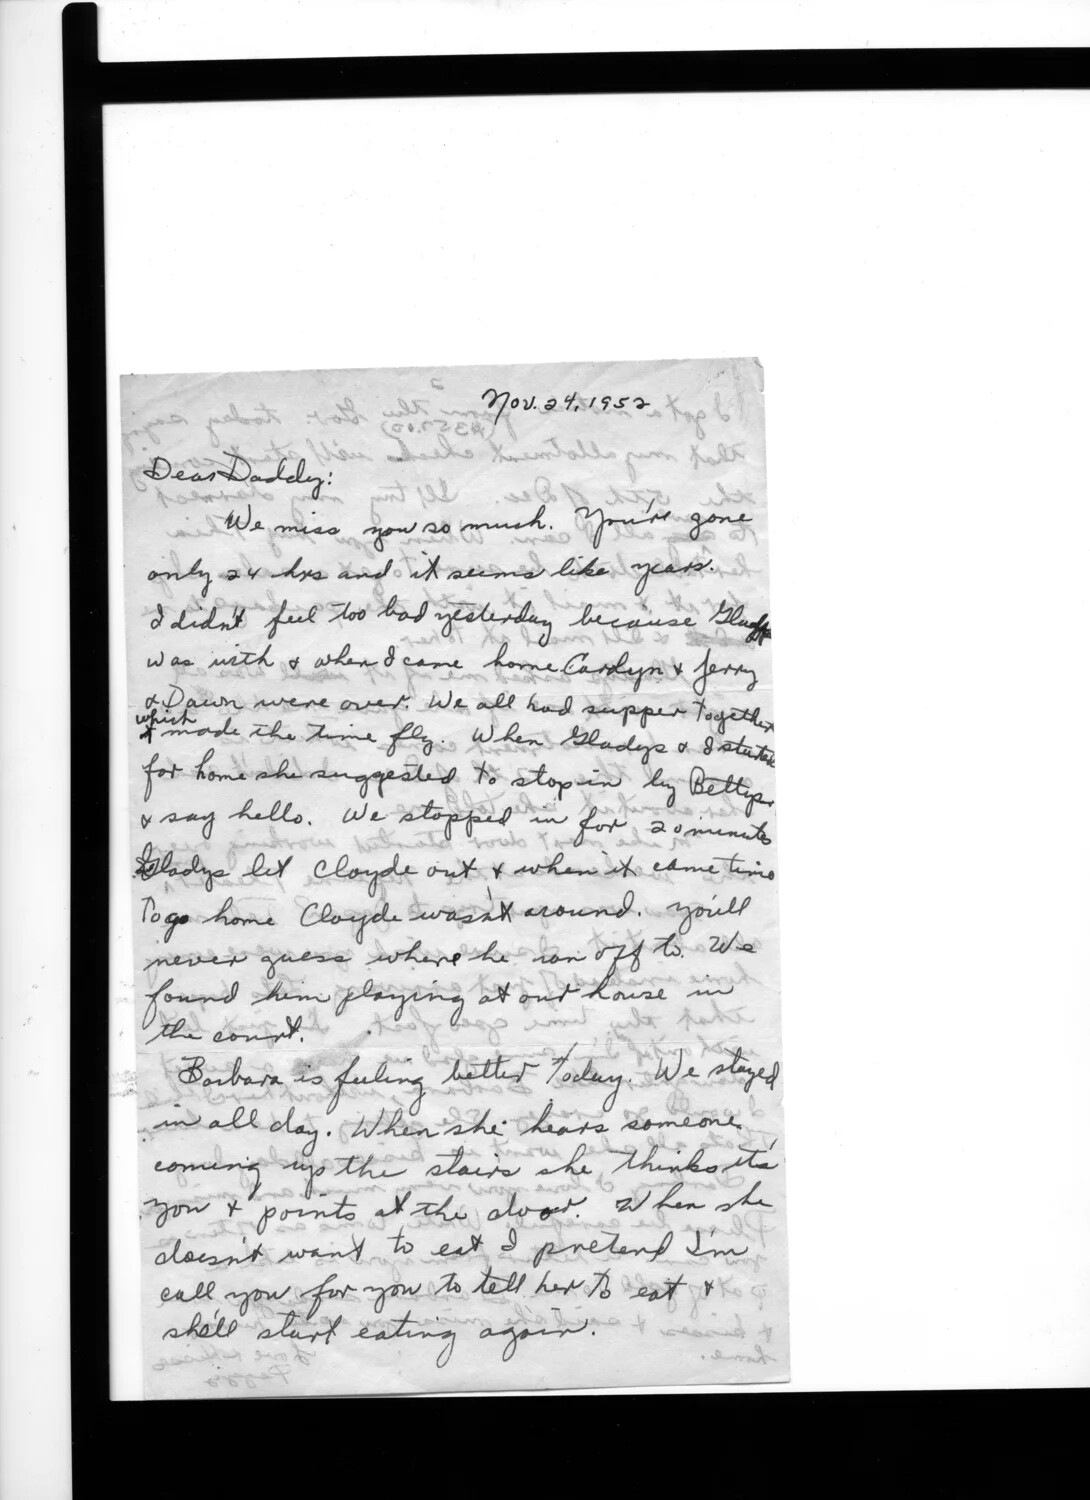 Nov. 24, 1952
Dear Daddy:
We miss you so much. You're gone
only 24 hrs and it seems like years.
I didn't feel too bad yesterday because Gladys
was with & when I came home Carolyn & Jerry
& Dawn were over. We all had supper together
which
made the time fly. When Gladys & I started
for home she suggested to stop in by Bettys
& say hello. We stopped in for 20 minutes
Gladys let Cloyde out & when it came time
to go home Cloyde wasn't around. You'll
never guess where he ran off to. We
found him playing at our house in
the court.
Barbara is feeling better today. We stayed
in all day. When she hears someone
coming up the stairs she thinks it's
you & points at the door. When she
doesn't want to eat I pretend I'm
call you for you to tell her to eat &
she'll start eating again.